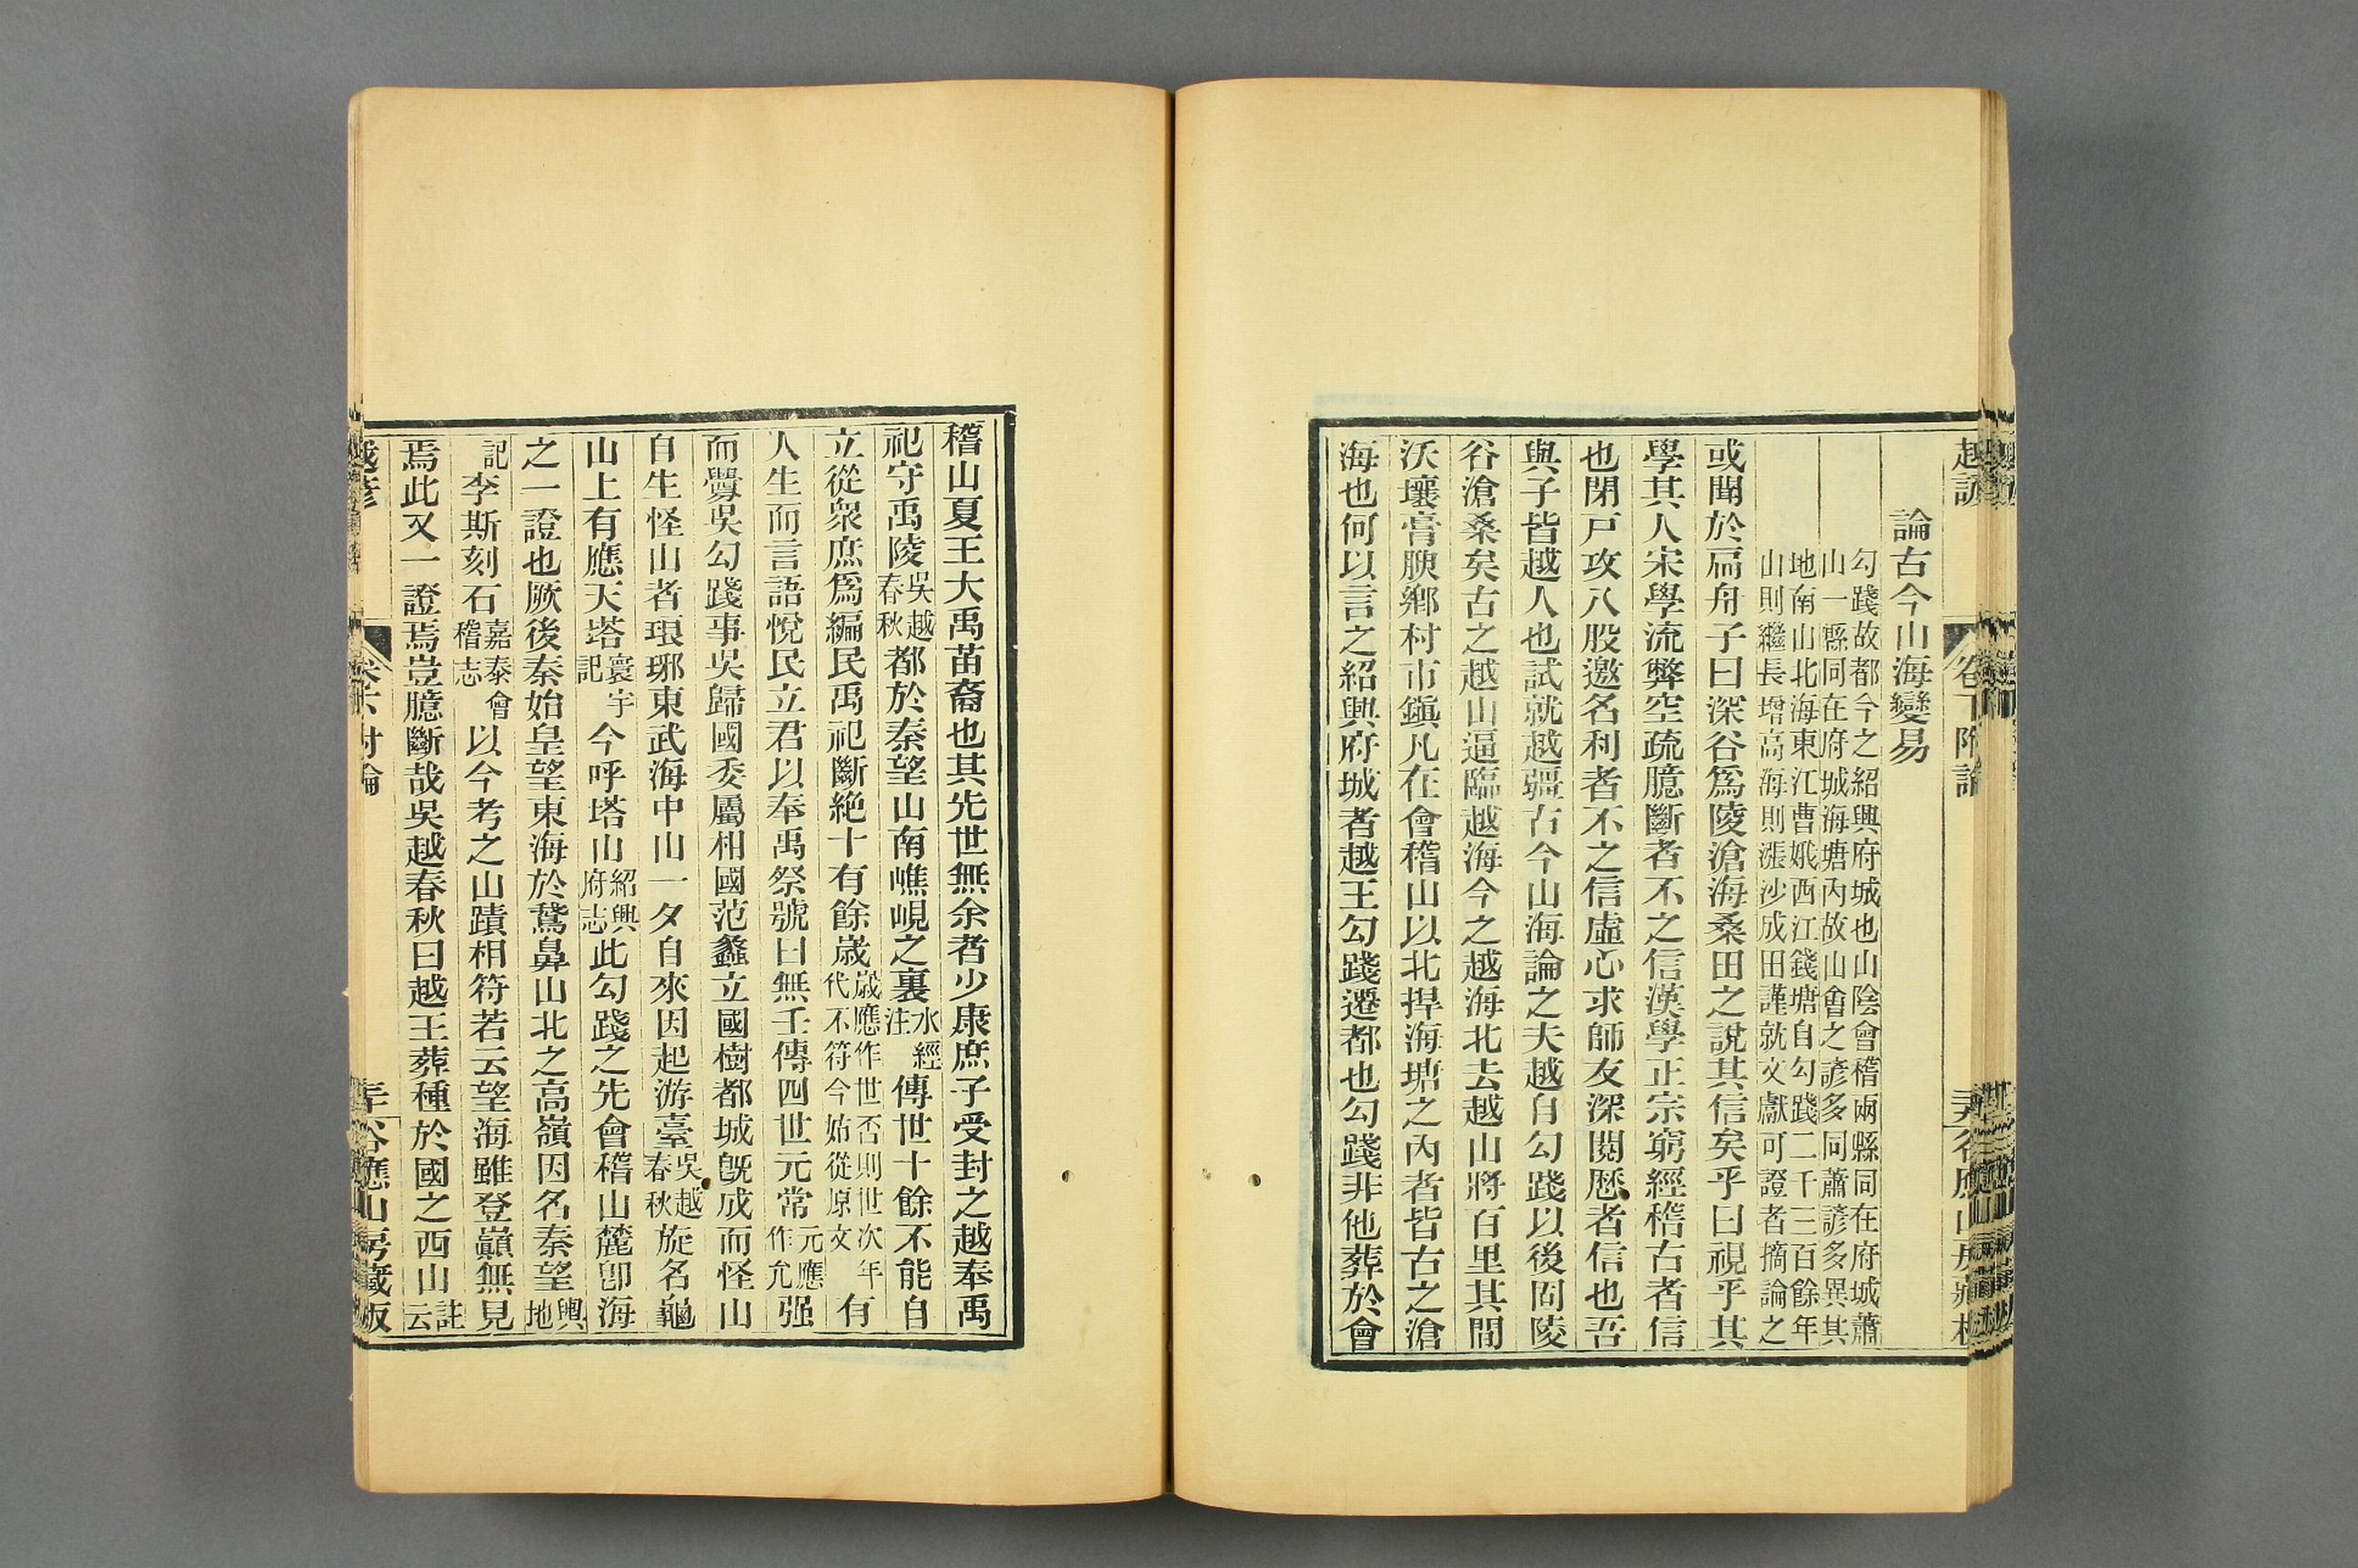 越諺
卷下附論
論古今山海變易
勾踐故都今之紹興府城也山陰會稽兩縣同在府城蕭
山一縣同在府城海塘內故山會之諺多同蕭諺多異其
地南山北海東江曹娥西江錢塘自勾踐二千三百餘年
山則繼長增高海則漲沙成田謹就文獻可證者摘論之
或聞於扁舟子曰深谷爲陵滄海桑田之說其信矣乎曰視乎其
學其人宋學流弊空疏臆斷者不之信漢學正宗窮經稽古者信
也閉戸攻八股邀名利者不之信虛心求師友深閱歷者信也吾
與子皆越人也試就越疆古今山海論之夫越自勾踐以後岡陵
谷滄桑矣古之越山逼臨越海今之越海北去越山將百里其間
沃壤膏腴鄉村市鎭凡在會稽山以北捍海塘之內者皆古之滄
海也何以言之紹興府城者越王勾踐遷都也勾踐非他葬於會
稽山夏王大禹苗裔也其先世無余者少康庶子受封之越奉禹
祀守禹陵吳越春秋都於秦望山南嶕峴之裏水經注傳世十餘不能自
立從衆庶爲編民禹祀斷絕十有餘歲歲應作世否則世次年代不符今姑從原文有
人生而言語悅民立君以奉禹祭號曰無壬傳四世元常元應作允强
而釁吳勾踐事吳歸國委屬相國范蠡立國樹都城旣成而怪山
自生怪山者琅琊東武海中山一夕自來因起游臺吳越春秋旋名龜
山上有應天塔寰宇記今呼塔山紹興府志此勾踐之先會稽山麓卽海
之一證也厥後秦始皇望東海於鵞鼻山北之高嶺因名秦望輿地
記李斯刻石嘉泰會稽志以今考之山蹟相符若云望海雖登巔無見
焉此又一證焉豈臆斷哉吳越春秋曰越王葬種於國之西山註云
越諺
附論
谷應山房藏版